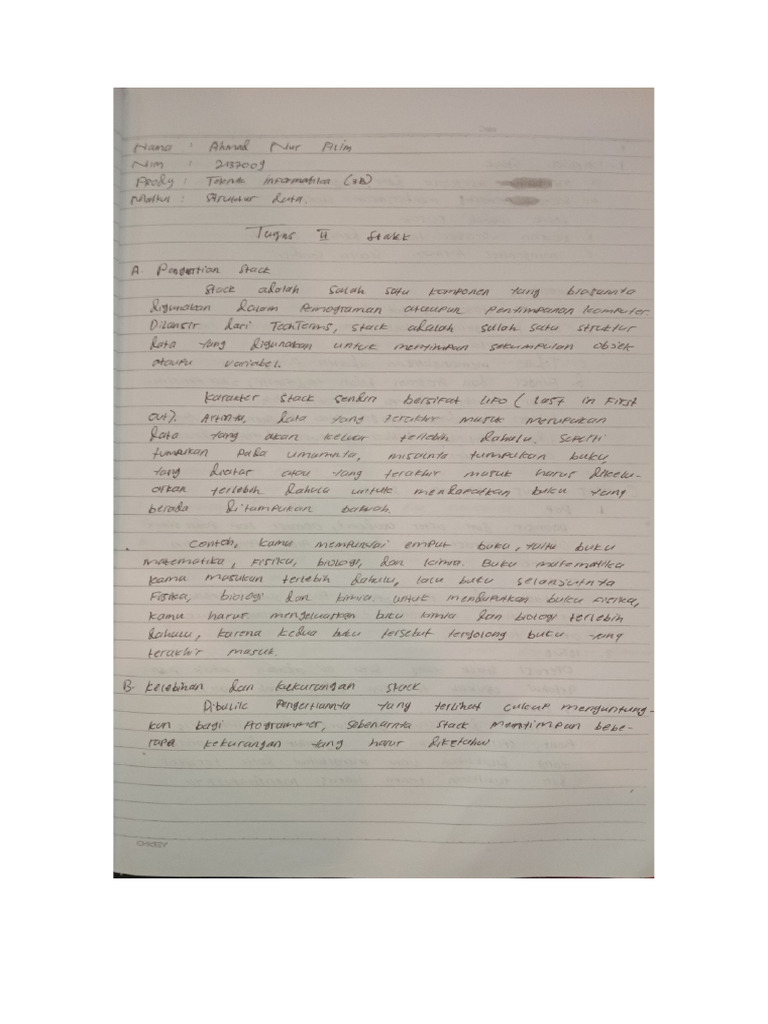 Nama : Ahmad Nur Alim
Nim : 2137009
Prody : Teknik informatika (3B)
Matkul : Struktur data.
Tugas II Stakk
A. Pengertian Stack
Stack adalah salah satu komponen yang biasannya
digunakan dalam Pemograman ataupun Penyimpanan komputer.
Dilansir dari TechTerms, stack adalah salah satu struktur
data yang digunakan untuk menyimpan sekumpulan objek
ataupu variabel.
Karakter stack sendiri bersifat LIFO (Last in First
out). Artinya, data yang terakhir masuk merupakan
data yang akan keluar terlebih dahulu. Seperti
tumpukan pada umumnya, misalnya tumpukan buku,
yang diatas atau yang terakhir masuk harus dikelu-
arkan terlebih dahulu untuk mendapatkan buku yang
berada ditumpukan bawah.
Contoh, kamu mempunyai empat buku, yaitu buku
matematika, Fisika, biologi, dan kimia. Buku matematika
kamu masukan terlebih dahulu, lalu buku selanjutnya
Fisika, biologi dan kimia. untuk mendapatkan buku Fisika,
kamu harus mengeluarkan buku kimia dan biologi terlebih
dahulu, karena kedua buku tersebut tergolong buku yang
terakhir masuk.
B. Kelebihan dan kekurangan stack
Dibalik Pengertiannya yang terlihat cukup menguntung-
kan bagi Programmer, sebenarnya stack menyimpan bebe-
rapa kekurangan yang harus diketahui